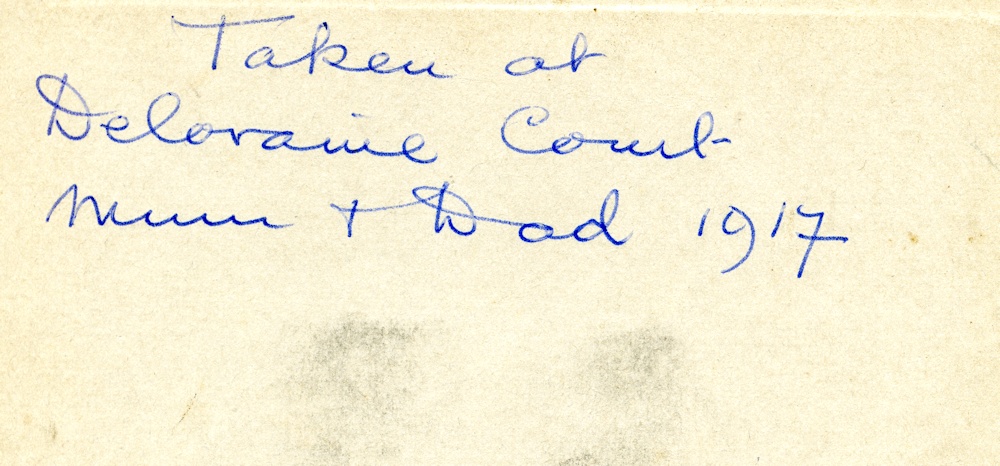 Taken at
Deloraine Court
Mum + Dad 1917